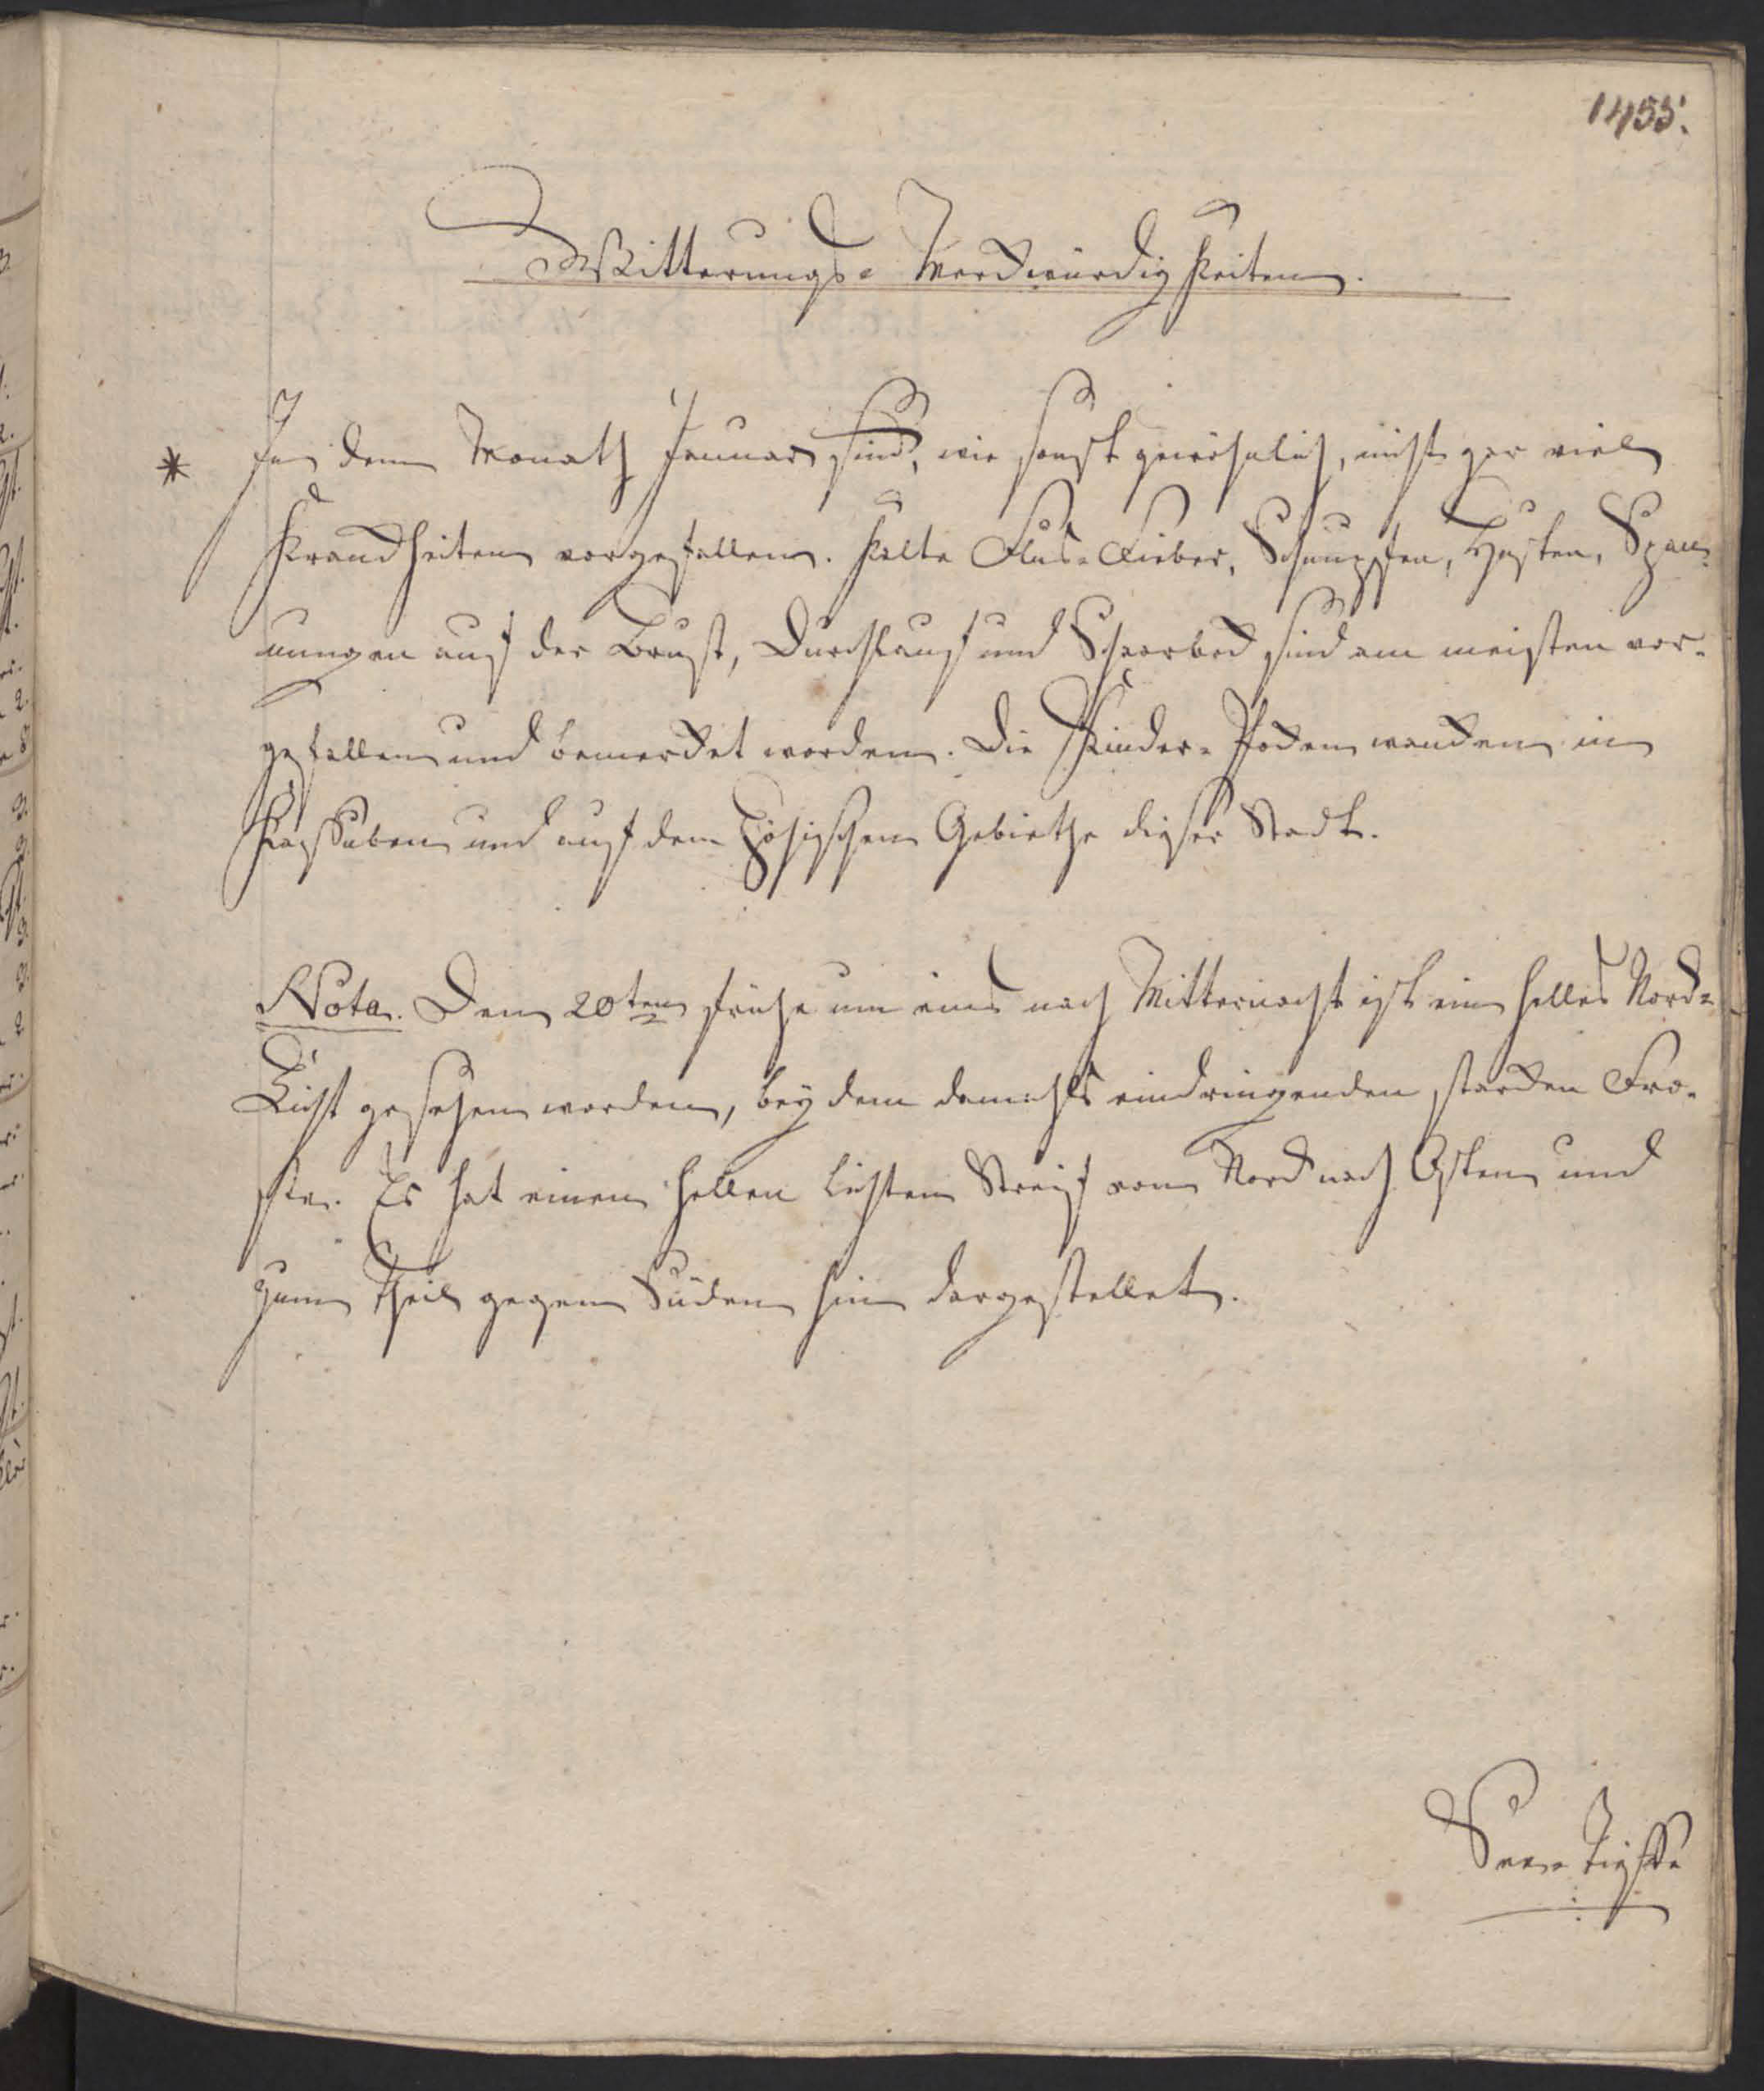 1455.
Witterungs-Merckwürdigkeiten.
* In dem Monath Januar sind, wie sonst gewöhnlich, nicht gar viel
Kranckheiten vorgefallen. Kalte Flus-Fieber, Schnupfen, Husten, Span-
nungen auf der Brust, Durchlauf und Schaarbock sind am meisten vor-
gefallen und bemercket worden. Die Kinder-Pocken in
Kassuben und auf dem Gebiethe dieser Stadt.
Nota. Den 20ten frühe um eins nach Mitternacht ist ein helles Nord-
Licht gesehen worden, bey dem damahls eindringenden starcken Fro-
ste. Es hat einen hellen lichten Streif von Nord nach Osten und
zum Theil gegen Süden hin dargestellet.